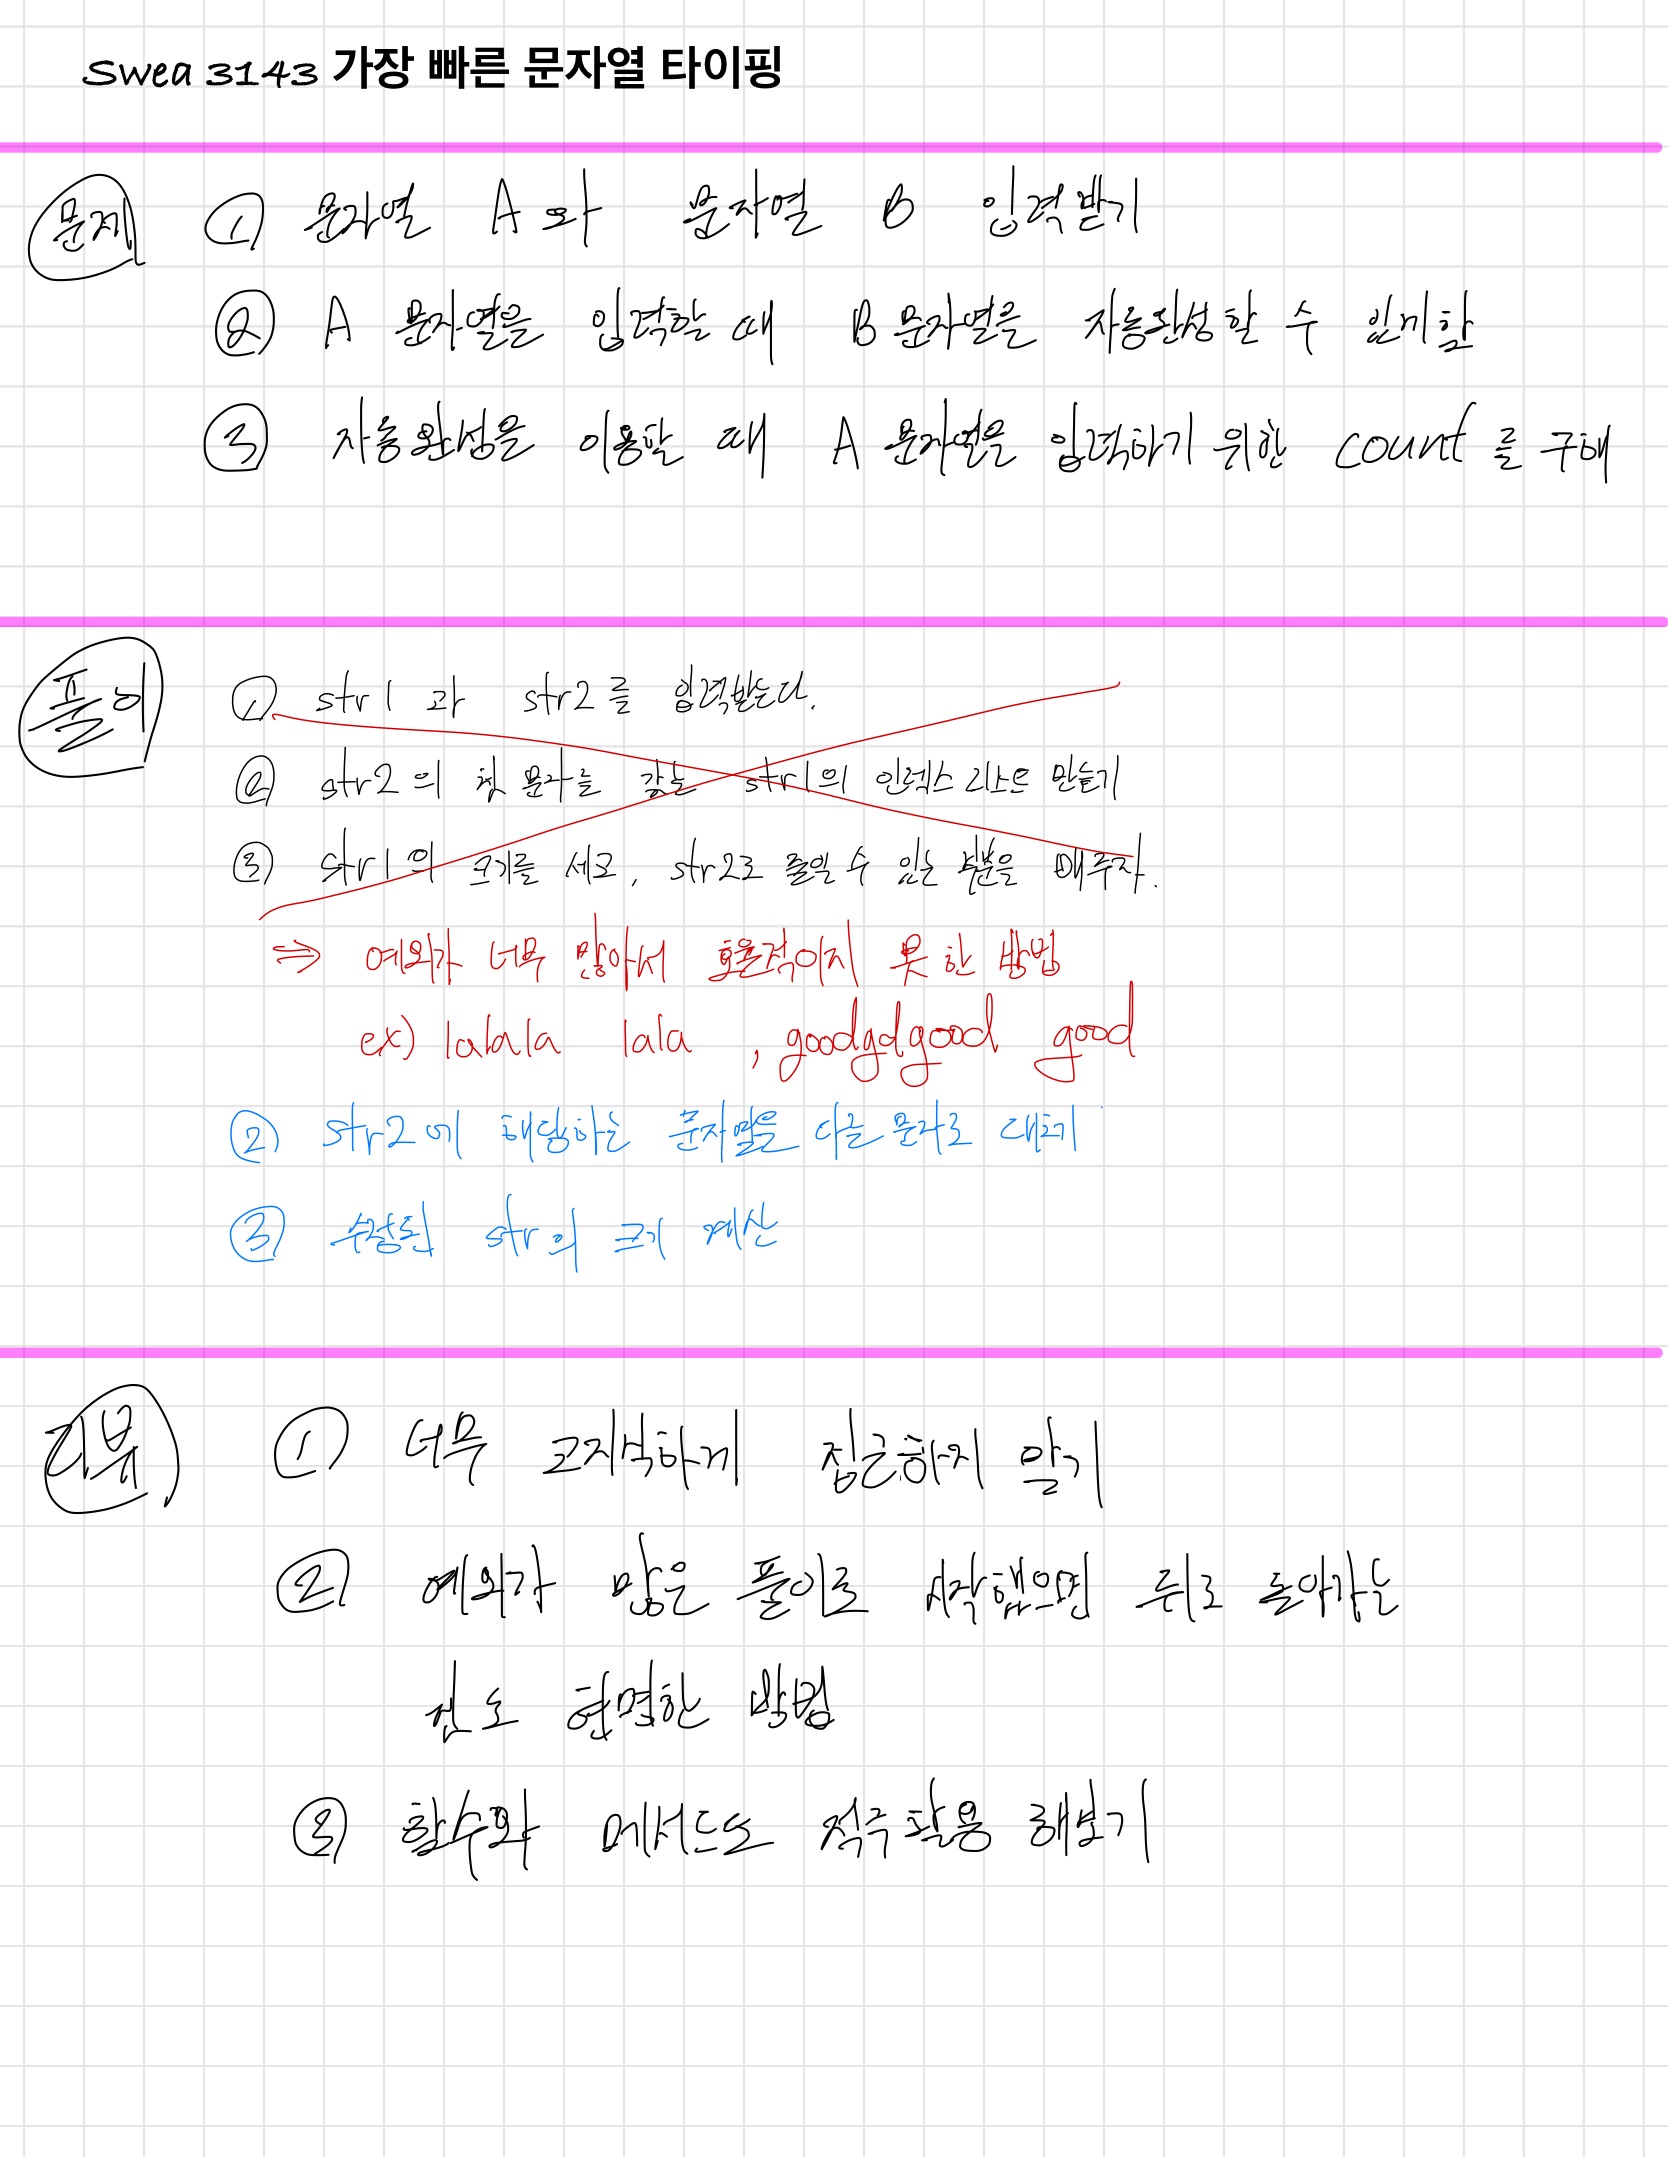 Swea 3143 가장 빠른 문자열 타이핑
문제 ① 문자열 A와 문자열 B 입력받기
② A 문자열을 입력할 때 B 문자열을 자동완성할 수
③ 자동완성을 이용할 때 A 문자열을 입력하기 위한 count를 구해
풀이 ① str1과 str2를 입력받는다.
② str2의 첫 문자를 갖는 str1의 인덱스 리스트 만들기
③ str1의 크기를 세고, str2로 줄일 수 있는 부분을 빼주자.
⇒ 예외가 너무 많아서 효율적이지 못한 방법
ex) lalala lala , goodgdgood good
② str2에 해당하는 문자열을 다른 문자로 대치
③ 수정된 str의 크기 계산
리뷰 ① 너무 고지식하게 접근하지 말기
② 예외가 많은 풀이로 시작했으면 뒤로 돌아가는
현명한 방법
③ 함수와 메서드도 적극 활용 해보기